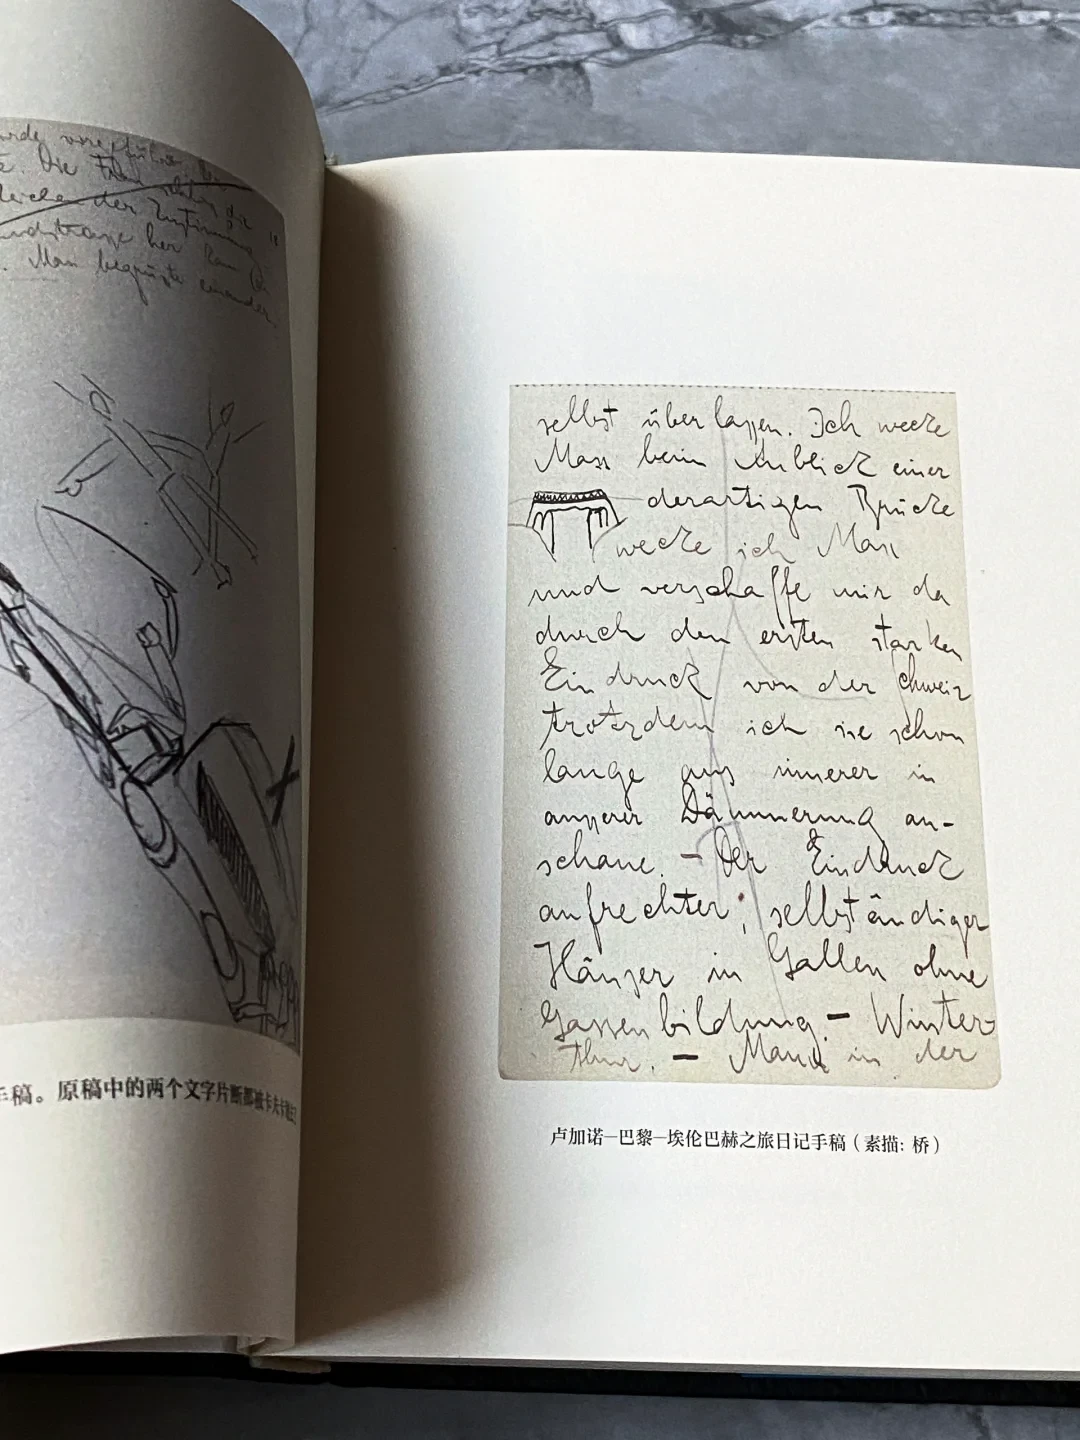 urde vorgeführt.
te. Die Frau
Zeichen der Zustimmung
andstrasse her kam
. Man begrüsste einander.
手稿。原稿中的两个文字片断都被卡夫卡
selbst überlassen. Ich wecke
Max beim Anblick einer
derartigen Brücke
wecke ich Max
und verschaffe mir da
durch den ersten starken
Eindruck von der Schweiz
trotzdem ich sie schon
lange aus innerer in
äusserer Dämmerung an-
schaue. – Der Eindruck
aufrechter, selbständiger
Häuser in Gallen ohne
Gassenbildung. – Winter-
thur. – Mann in der
卢加诺—巴黎—埃伦巴赫之旅日记手稿（素描: 桥）